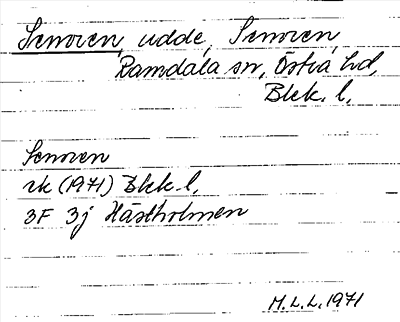 Senoren, udde, Senoren,
Ramdala sn, Östra hd,
Blek. l.
Senoren
rk (1971) Blek. l.
3F 3j Hästholmen
M.L.L. 1971